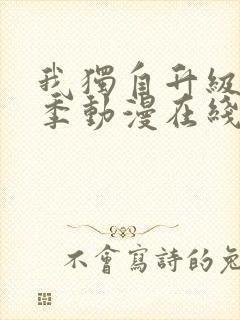 我獨自升級
季動漫在綫
不會寫詩的兔